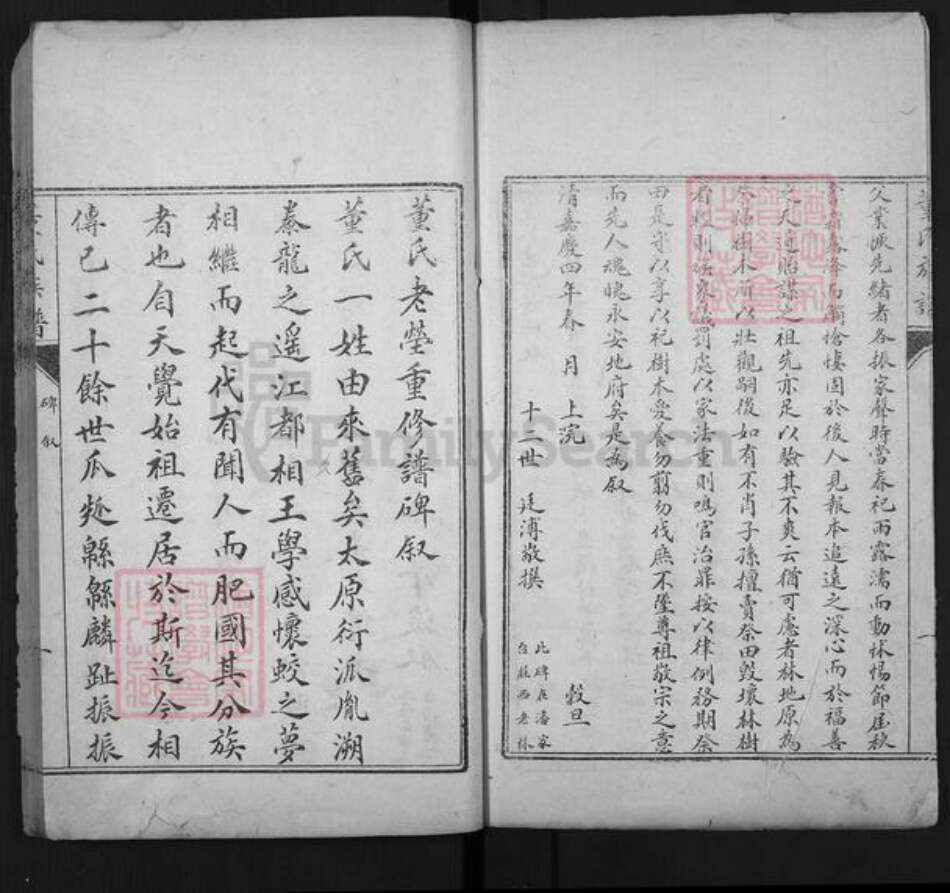 父業承先緒者各振家聲時當春祀雨露濡而動怵惕節屆秋
霜露降而觸愴悽固於後人見報本追遠之深心而於福善
之天道貽謀之祖先亦足以驗其不爽云猶可慮者林地原為
祭掃樹木所以壯觀嗣後如有不肖子孫擅賣祭田毀壞林樹
者輕則研家處罰處以家法重則鳴官治罪按以律例務期祭
田是求以享以祀樹木愛養勿翦勿伐庶不墜尊祖敬宗之意
而先人魂魄永安地府矣是為敘
清嘉慶四年春 月 上浣 穀旦
十三世 廷溥敬撰
此碑在潘家
台莊西老林
董氏老塋重修譜碑敘
董氏一姓由來舊矣太原衍派胤溯
豢龍之遙江都相王學感懷蛟之夢
相繼而起代有聞人而肥國其分族
者也自天覺始祖遷居於斯迄今相
傳已二十餘世瓜瓞緜緜麟趾振振
董氏族譜
碑敘
FamilySearch